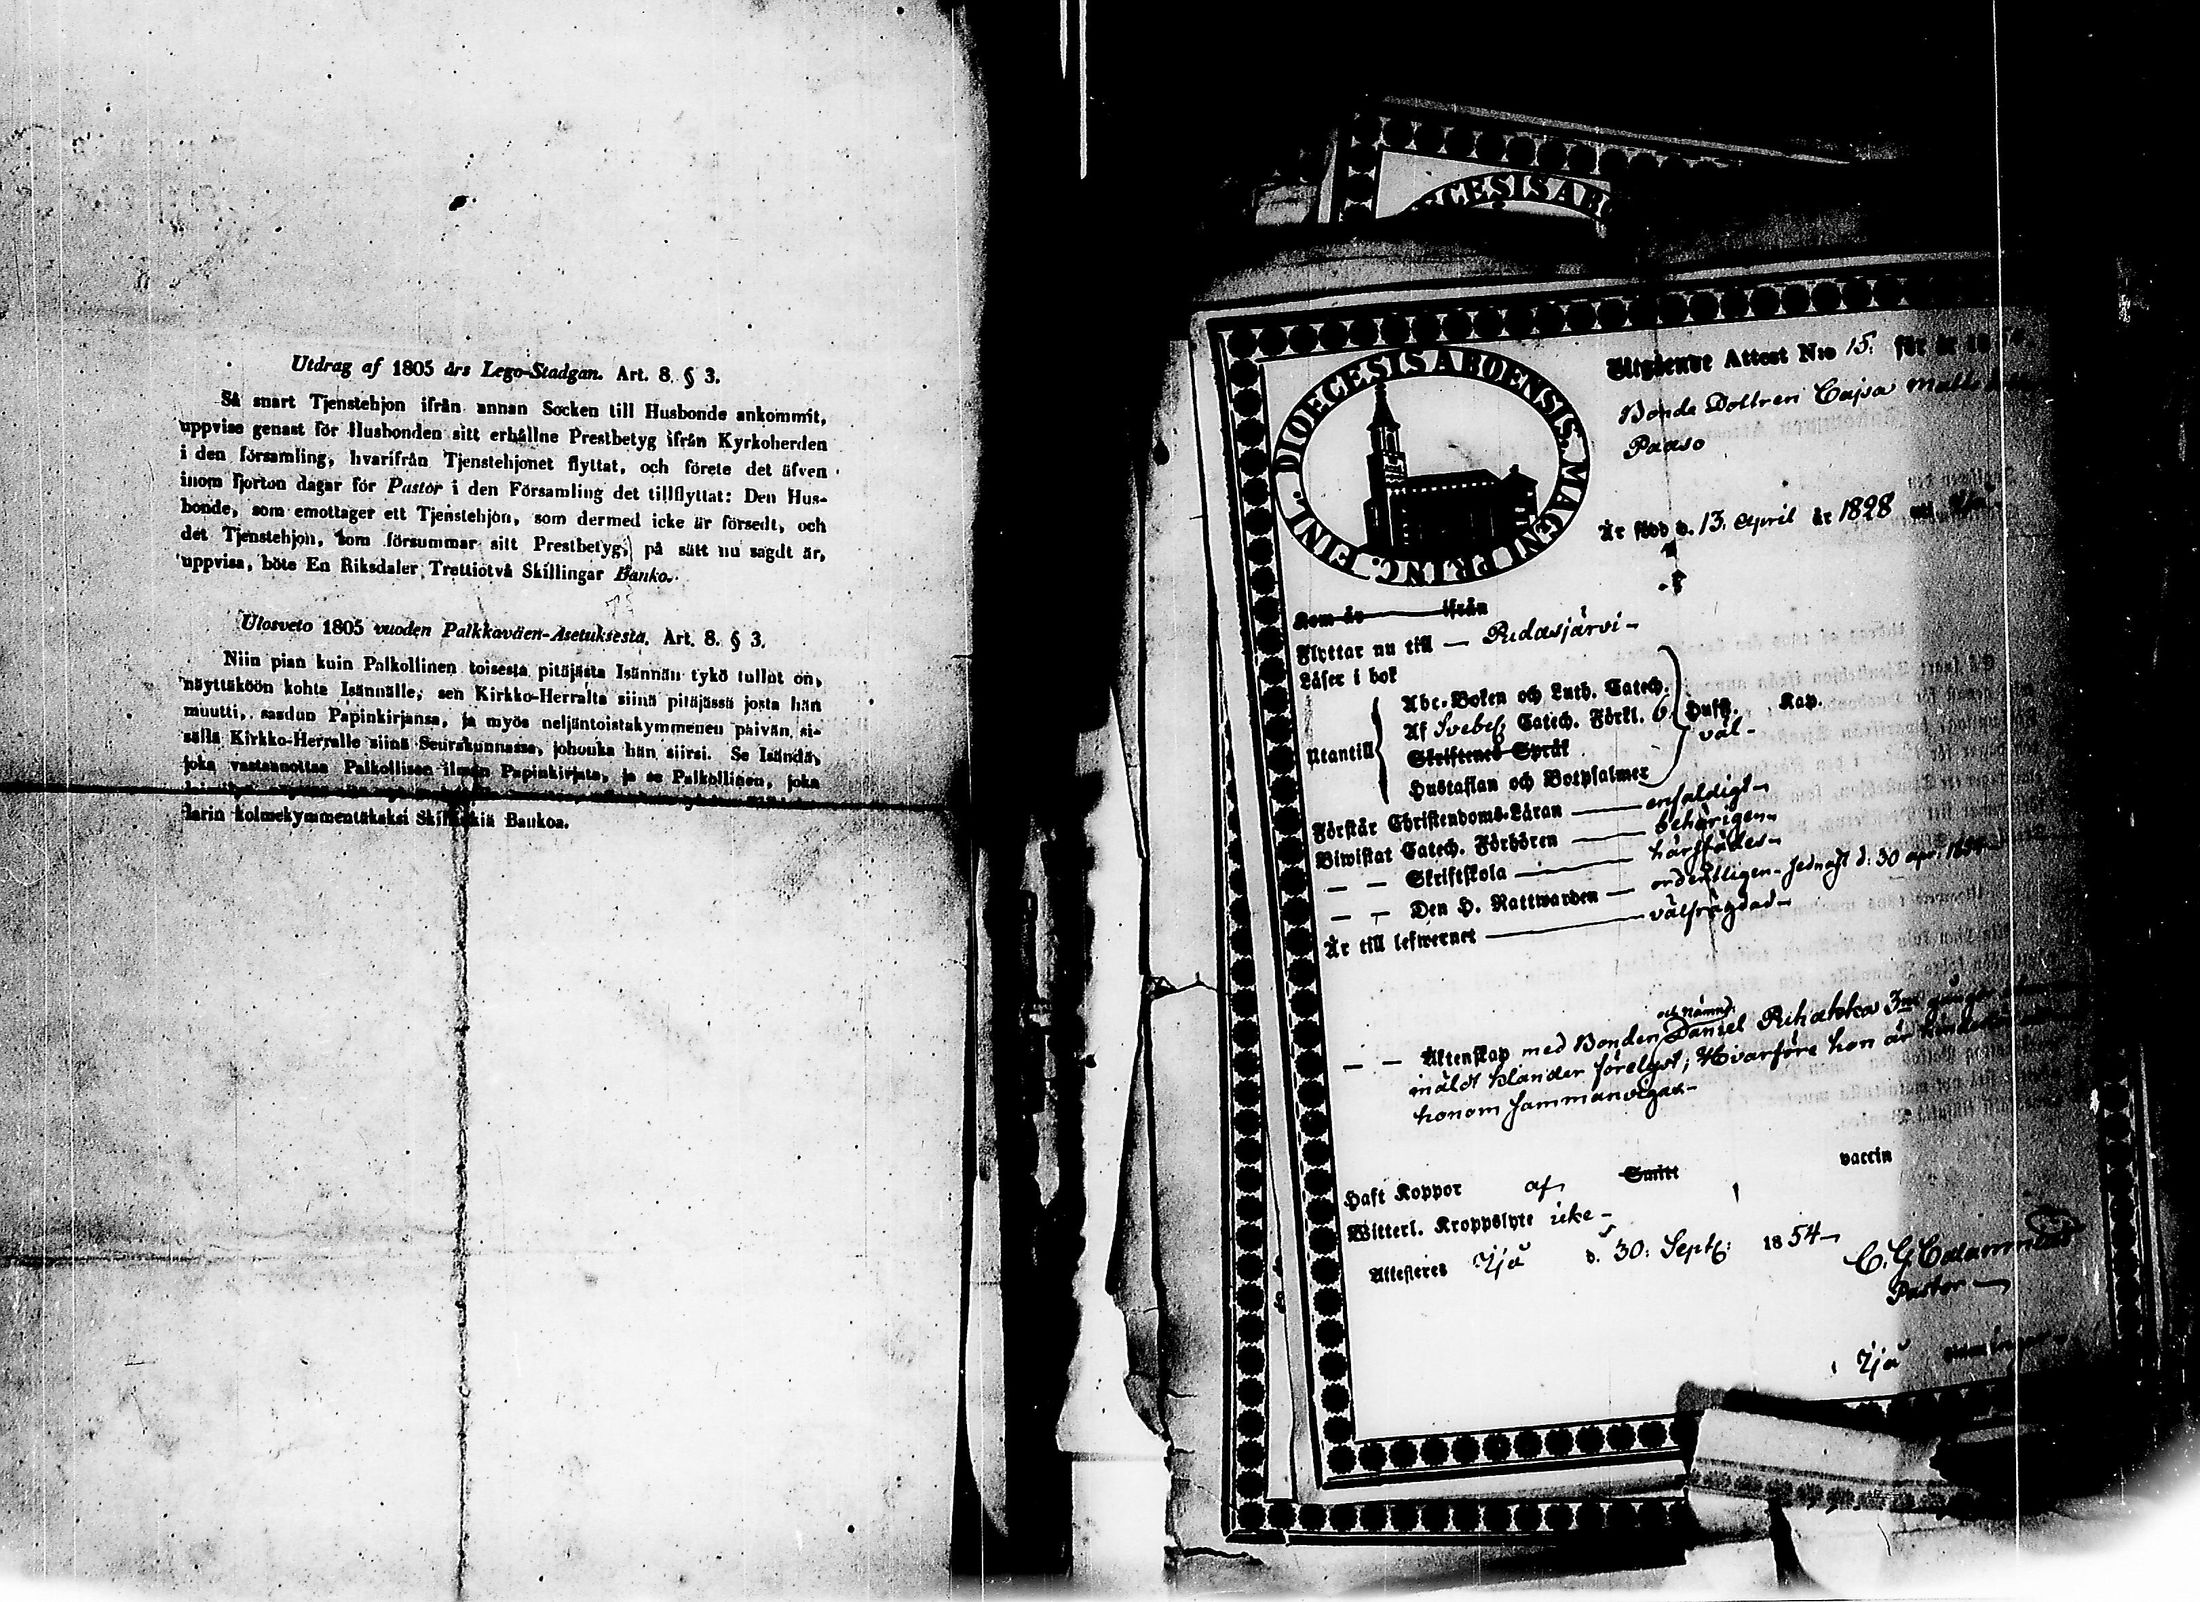 Utdrag af 1805 års Lego-Stadgan. Art. 8. § 3.
Så snart Tjenstehjon ifrån annan Socken till Husbonde ankommit,
uppvise genast för Husbonden sitt erhållne Prestbetyg ifrån Kyrkoherden
i den församling, hvarifrån Tjenstehjonet flyttat, och förete det äfven
inom fjorton dagar för Pastor i den Församling det tillflyttat: Den Hus-
bonde, som emottager ett Tjenstehjon, som dermed icke är försedt, och
det Tjenstehjon, som försummar sitt Prestbetyg, på sätt nu sagdt är,
uppvisa, böte En Riksdaler Trettiotvå Skillingar Banko.
Ulosveto 1805 vuoden Palkkaväen-Asetuksesta. Art. 8. § 3.
Niin pian kuin Palkollinen toisesta pitäjästä Isännän tykö tullut on,
näyttäköön kohta Isännälle, sen Kirkko-Herralta siinä pitäjässä josta hän
muutti, saadun Papinkirjansa, ja myös neljäntoistakymmenen päivän si-
sällä Kirkko-Herralle siinä Seurakunnassa, johonka hän siirsi. Se Isändä,
joka vastaanottaa Palkollisen ilman Papinkirjata, ja se Palkollinen, joka
larin kolmekymmentäkaksi Skillinkiä Bankoa.
DIOECESIS ABO
DIOECESIS ABOENSIS MAGNI PRINC. FINL.
Utgående Attest N:o 15. för år 18
Bonde Dottren Cajsa Matts
Paaso
Är född d. 13. April år 1828
Kom år ifrån
Flyttar nu till — Pudasjärvi –
Läser i bok
Abc-Boken och Luth. Catech.
Af Svebel. Catech. Förkl. 6. Husst. Kap.
Utantill väl –
Skriftenes Språk
Hustaflan och Botpsalmer
Förstår Christendoms-Läran — enfaldigt –
Biwistat Catech. Förhören — behörigen –
— — Skriftskola — härstädes –
— — Den H. Nattwarden — ordentligen – senast d: 30 apr: 1854
Är till lefwernet — välfrägdad –
och Nämnd.
— — Äktenskap med Bonden Daniel Puhakka 3ne gånger
mäldt blander förelyst; Hvarföre hon är
honom sammanvigas –
Haft Koppor af Smitt vaccin
Witterl. Kroppslyte icke –
Attesteres Ijå d. 30: Sept: 1854 –
C. G. Calamnius
Pastor —
Ijå